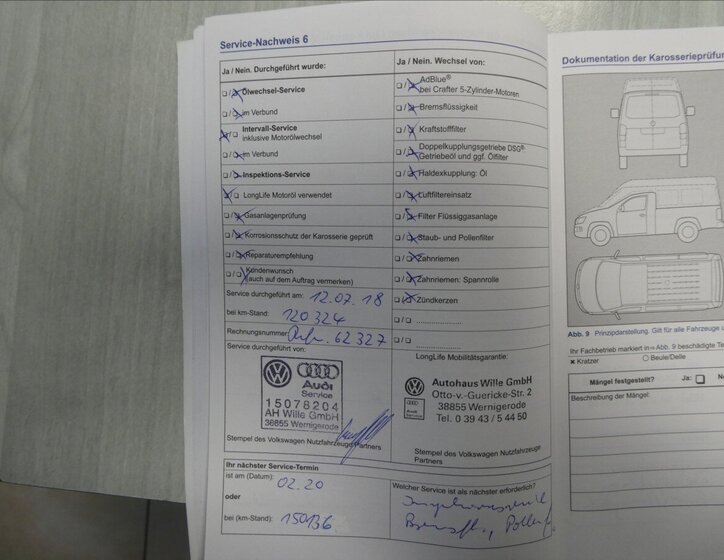 Service-Nachweis 6
Ja / Nein. Durchgeführt wurde:
Ölwechsel-Service
im Verbund
Intervall-Service
inklusive Motorölwechsel
im Verbund
Inspektions-Service
LongLife Motoröl verwendet
Gasanlagenprüfung
Korrosionsschutz der Karosserie geprüft
Reparaturempfehlung
Kundenwunsch
(auch auf dem Auftrag vermerken)
Service durchgeführt am: 12.07.18
bei km-Stand: 120324
Rechnungsnummer: 62327
Service durchgeführt von:
Audi
Service
15078204
AH Wille GmbH
38855 Wernigerode
Stempel des Volkswagen Nutzfahrzeuge Partners
Ihr nächster Service-Termin
ist am (Datum): 02.20
oder
bei (km-Stand): 150136
Ja / Nein. Wechsel von:
AdBlue®
bei Crafter 5-Zylinder-Motoren
Bremsflüssigkeit
Kraftstofffilter
Doppelkupplungsgetriebe DSG®:
Getriebeöl und ggf. Ölfilter
Haldexkupplung: Öl
Luftfiltereinsatz
Filter Flüssiggasanlage
Staub- und Pollenfilter
Zahnriemen
Zahnriemen: Spannrolle
Zündkerzen
LongLife Mobilitätsgarantie:
Audi
Service
Autohaus Wille GmbH
Otto-v.-Guericke-Str. 2
38855 Wernigerode
Tel. 0 39 43 / 5 44 50
Stempel des Volkswagen Nutzfahrzeuge
Partners
Welcher Service ist als nächster erforderlich?
Dokumentation der Karosserieprüfun
Abb. 9 Prinzipdarstellung. Gilt für alle Fahrzeuge
Ihr Fachbetrieb markiert in ⇒ Abb. 9 beschädigte Te
× Kratzer ○ Beule/Delle
Mängel festgestellt? Ja: Ne
Beschreibung der Mängel: